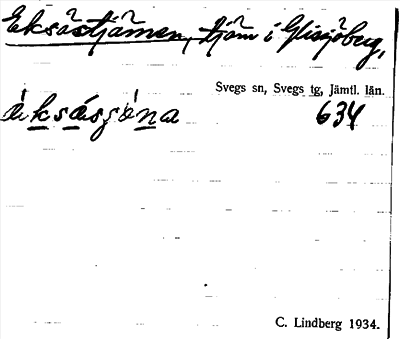 Eksåstjärnen, tjärn i Glissjöberg,
Svegs sn, Svegs tg, Jämtl. län.
634
C. Lindberg 1934.